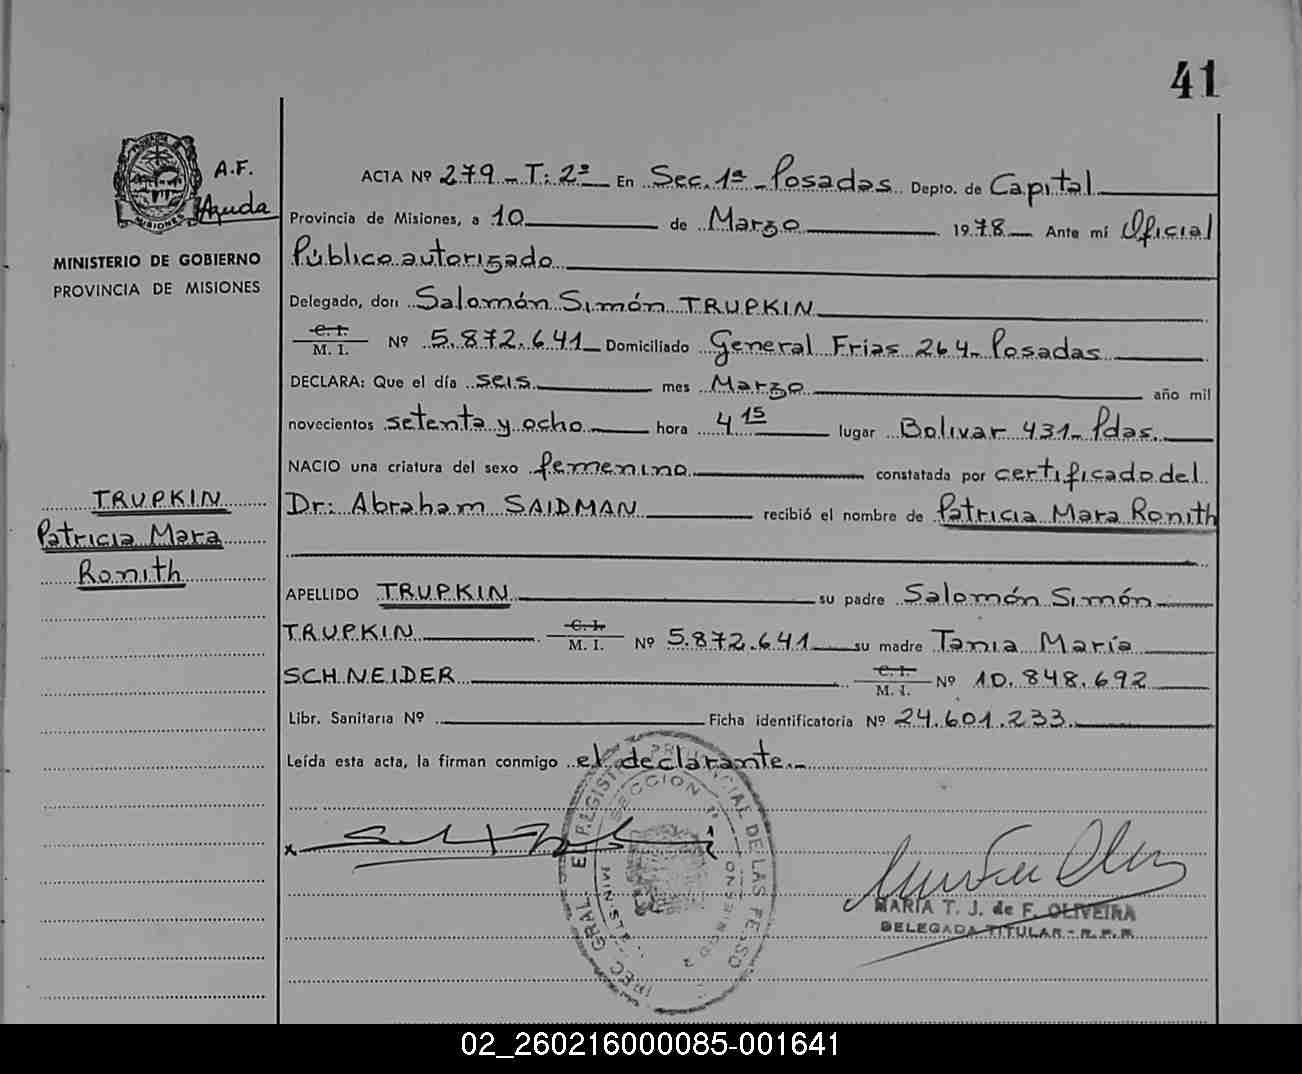 41
A.F.
Ayuda
MISIONES
MINISTERIO DE GOBIERNO
PROVINCIA DE MISIONES
TRUPKIN
Patricia Mara
Ronith
ACTA Nº 279 - T: 2º En Sec. 1ª - Posadas Depto. de Capital
Provincia de Misiones, a 10 de Marzo 1978 Ante mí Oficial
Público autorizado
Delegado, don Salomón Simón TRUPKIN
C. I.
M. I. Nº 5.872.641 Domiciliado General Frias 264 - Posadas
DECLARA: Que el día seis mes Marzo año mil
novecientos setenta y ocho hora 4 15 lugar Bolivar 431 - Pdas.
NACIO una criatura del sexo femenino constatada por certificado del
Dr: Abraham SAIDMAN recibió el nombre de Patricia Mara Ronith
APELLIDO TRUPKIN su padre Salomón Simón
TRUPKIN C. I. M. I. Nº 5.872.641 su madre Tania María
SCHNEIDER C. I. M. I. Nº 10.848.692
Libr. Sanitaria Nº Ficha identificatoria Nº 24.601.233
Leída esta acta, la firman conmigo el declarante.-
SECCION 1ª
MARIA T. J. de F. OLIVEIRA
DELEGADA TITULAR - R.P.P.
02_260216000085-001641